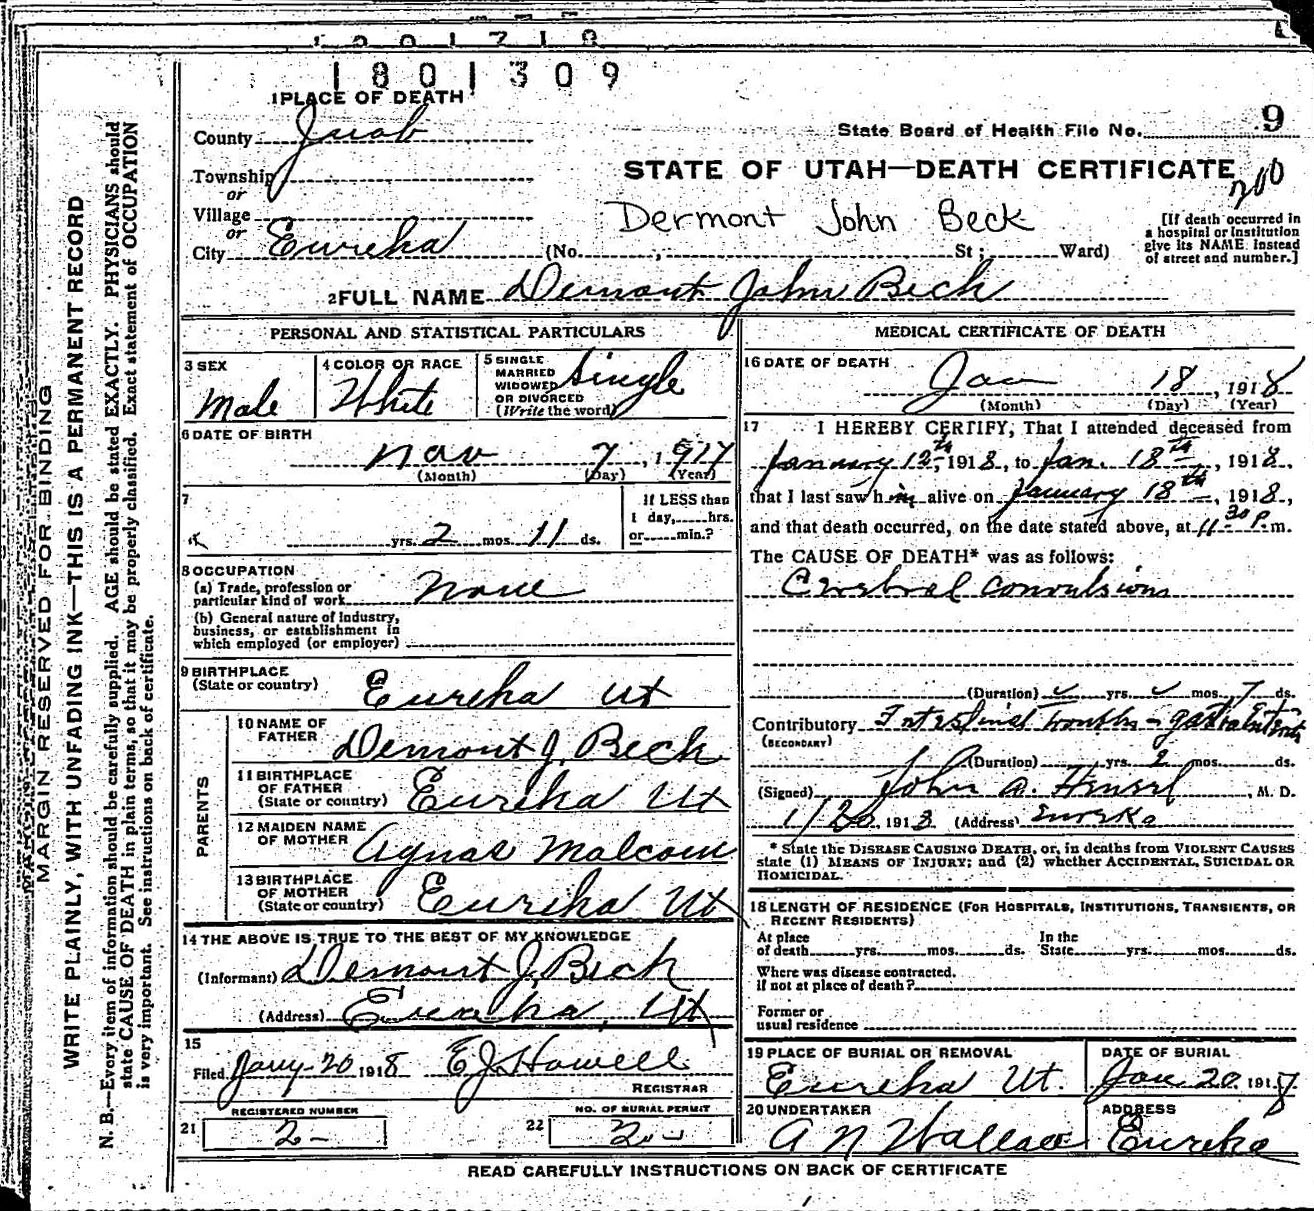 1801309
1 PLACE OF DEATH
County Juab
State Board of Health File No. 9
Township
STATE OF UTAH—DEATH CERTIFICATE
or
Village
200
or
Dermont John Beck
City Eureka (No. ; St; Ward)
[If death occurred in
a hospital or institution
give its NAME instead
of street and number.]
2 FULL NAME Demont John Beck
PERSONAL AND STATISTICAL PARTICULARS
3 SEX
Male
4 COLOR OR RACE
White
5 SINGLE
MARRIED
WIDOWED
OR DIVORCED
(Write the word)
Single
6 DATE OF BIRTH
Nov 7, 1917
(Month) (Day) (Year)
7
yrs. 2 mos. 11 ds.
If LESS than
1 day, hrs.
or min.?
8 OCCUPATION
(a) Trade, profession or
particular kind of work None
(b) General nature of Industry,
business, or establishment in
which employed (or employer)
9 BIRTHPLACE
(State or country) Eureka Ut
PARENTS
10 NAME OF
FATHER Demont J. Beck
11 BIRTHPLACE
OF FATHER
(State or country) Eureka Ut
12 MAIDEN NAME
OF MOTHER Agnas Malcom
13 BIRTHPLACE
OF MOTHER
(State or country) Eureka Ut
14 THE ABOVE IS TRUE TO THE BEST OF MY KNOWLEDGE
(Informant) Demont J. Beck
(Address) Eureka, Ut
15
Filed Jany 20 1918 E J Howell
REGISTRAR
REGISTERED NUMBER
21 2
NO. OF BURIAL PERMIT
22 2
MEDICAL CERTIFICATE OF DEATH
16 DATE OF DEATH
Jan 18, 1918
(Month) (Day) (Year)
17 I HEREBY CERTIFY, That I attended deceased from
January 12th, 1918, to Jan. 18th, 1918,
that I last saw him alive on January 18th, 1918,
and that death occurred, on the date stated above, at 11 30 P.m.
The CAUSE OF DEATH* was as follows:
Cerebral convulsions
(Duration) yrs. mos. 7 ds.
Contributory Intestinal trouble - gastrointestinal
(SECONDARY)
(Duration) yrs. 2 mos. ds.
(Signed) John A. Hensel, M. D.
1/20, 1913 (Address) Eureka
* State the DISEASE CAUSING DEATH, or, in deaths from VIOLENT CAUSES
state (1) MEANS OF INJURY; and (2) whether ACCIDENTAL, SUICIDAL OR
HOMICIDAL.
18 LENGTH OF RESIDENCE (FOR HOSPITALS, INSTITUTIONS, TRANSIENTS, OR
RECENT RESIDENTS)
At place
of death yrs. mos. ds.
In the
State yrs. mos. ds.
Where was disease contracted.
If not at place of death?
Former or
usual residence
19 PLACE OF BURIAL OR REMOVAL
Eureka Ut.
DATE OF BURIAL
Jan 20 1918
20 UNDERTAKER
A N Wallace
ADDRESS
Eureka
READ CAREFULLY INSTRUCTIONS ON BACK OF CERTIFICATE
MARGIN RESERVED FOR BINDING
WRITE PLAINLY, WITH UNFADING INK—THIS IS A PERMANENT RECORD
N. B.—Every item of information should be carefully supplied. AGE should be stated EXACTLY. PHYSICIANS should
state CAUSE OF DEATH in plain terms, so that it may be properly classified. Exact statement of OCCUPATION
is very important. See instructions on back of certificate.